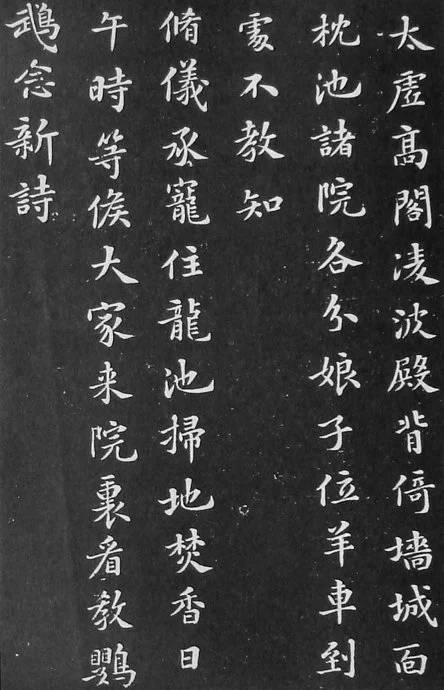 太虛高閣凌波殿背倚墻城面
枕池諸院各分娘子位羊車到
處不教知
脩儀承寵住龍池掃地焚香日
午時等候大家来院裏看教鸚
鵡念新詩